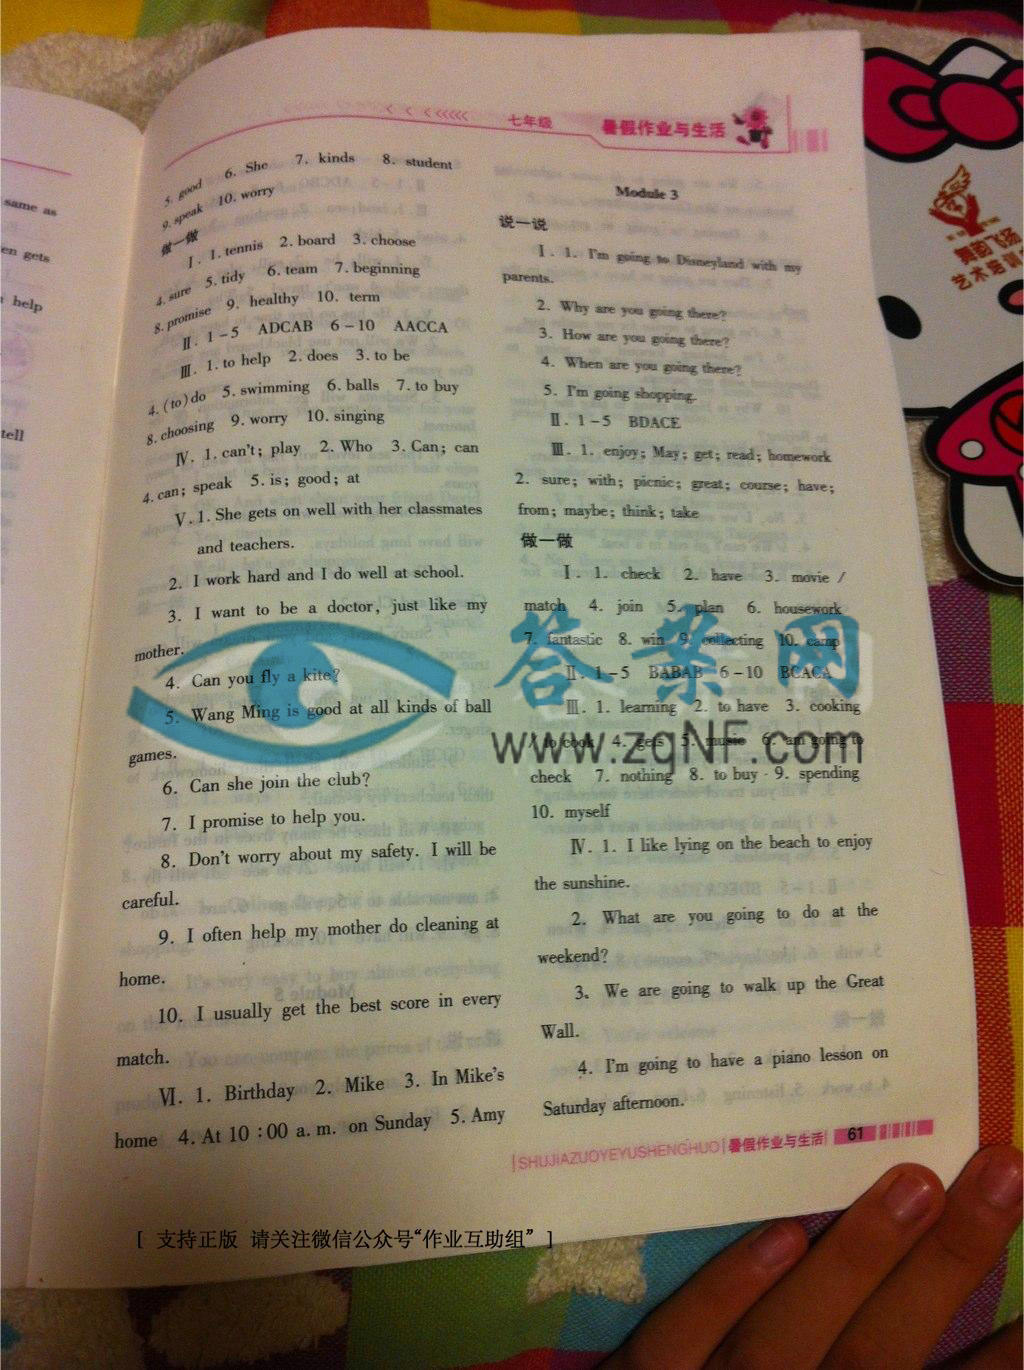 same as
en gets
help
tell
七年级 暑假作业与生活
5. good 6. She 7. kinds 8. student
9. speak 10. worry
做一做
Ⅰ. 1. tennis 2. board 3. choose
4. sure 5. tidy 6. team 7. beginning
8. promise 9. healthy 10. term
Ⅱ. 1-5 ADCAB 6-10 AACCA
Ⅲ. 1. to help 2. does 3. to be
4. (to) do 5. swimming 6. balls 7. to buy
8. choosing 9. worry 10. singing
Ⅳ. 1. can't; play 2. Who 3. Can; can
4. can; speak 5. is; good; at
Ⅴ. 1. She gets on well with her classmates
and teachers.
2. I work hard and I do well at school.
3. I want to be a doctor, just like my
mother.
4. Can you fly a kite?
5. Wang Ming is good at all kinds of ball
games.
6. Can she join the club?
7. I promise to help you.
8. Don't worry about my safety. I will be
careful.
9. I often help my mother do cleaning at
home.
10. I usually get the best score in every
match.
Ⅵ. 1. Birthday 2. Mike 3. In Mike's
home 4. At 10:00 a. m. on Sunday 5. Amy
Module 3
说一说
Ⅰ. 1. I'm going to Disneyland with my
parents.
2. Why are you going there?
3. How are you going there?
4. When are you going there?
5. I'm going shopping.
Ⅱ. 1-5 BDACE
Ⅲ. 1. enjoy; May; get; read; homework
2. sure; with; picnic; great; course; have;
from; maybe; think; take
做一做
Ⅰ. 1. check 2. have 3. movie /
match 4. join 5. plan 6. housework
7. fantastic 8. win 9. collecting 10. camp
Ⅱ. 1-5 BABAB 6-10 BCACA
Ⅲ. 1. learning 2. to have 3. cooking
/ to cook 4. get 5. music 6. am going to
check 7. nothing 8. to buy 9. spending
10. myself
Ⅳ. 1. I like lying on the beach to enjoy
the sunshine.
2. What are you going to do at the
weekend?
3. We are going to walk up the Great
Wall.
4. I'm going to have a piano lesson on
Saturday afternoon.
SHUJIAZUOYEYUSHENGHUO 暑假作业与生活 61
答案网
www.zqNF.com
舞韵飞扬
艺术培训
[ 支持正版 请关注微信公众号“作业互助组” ]